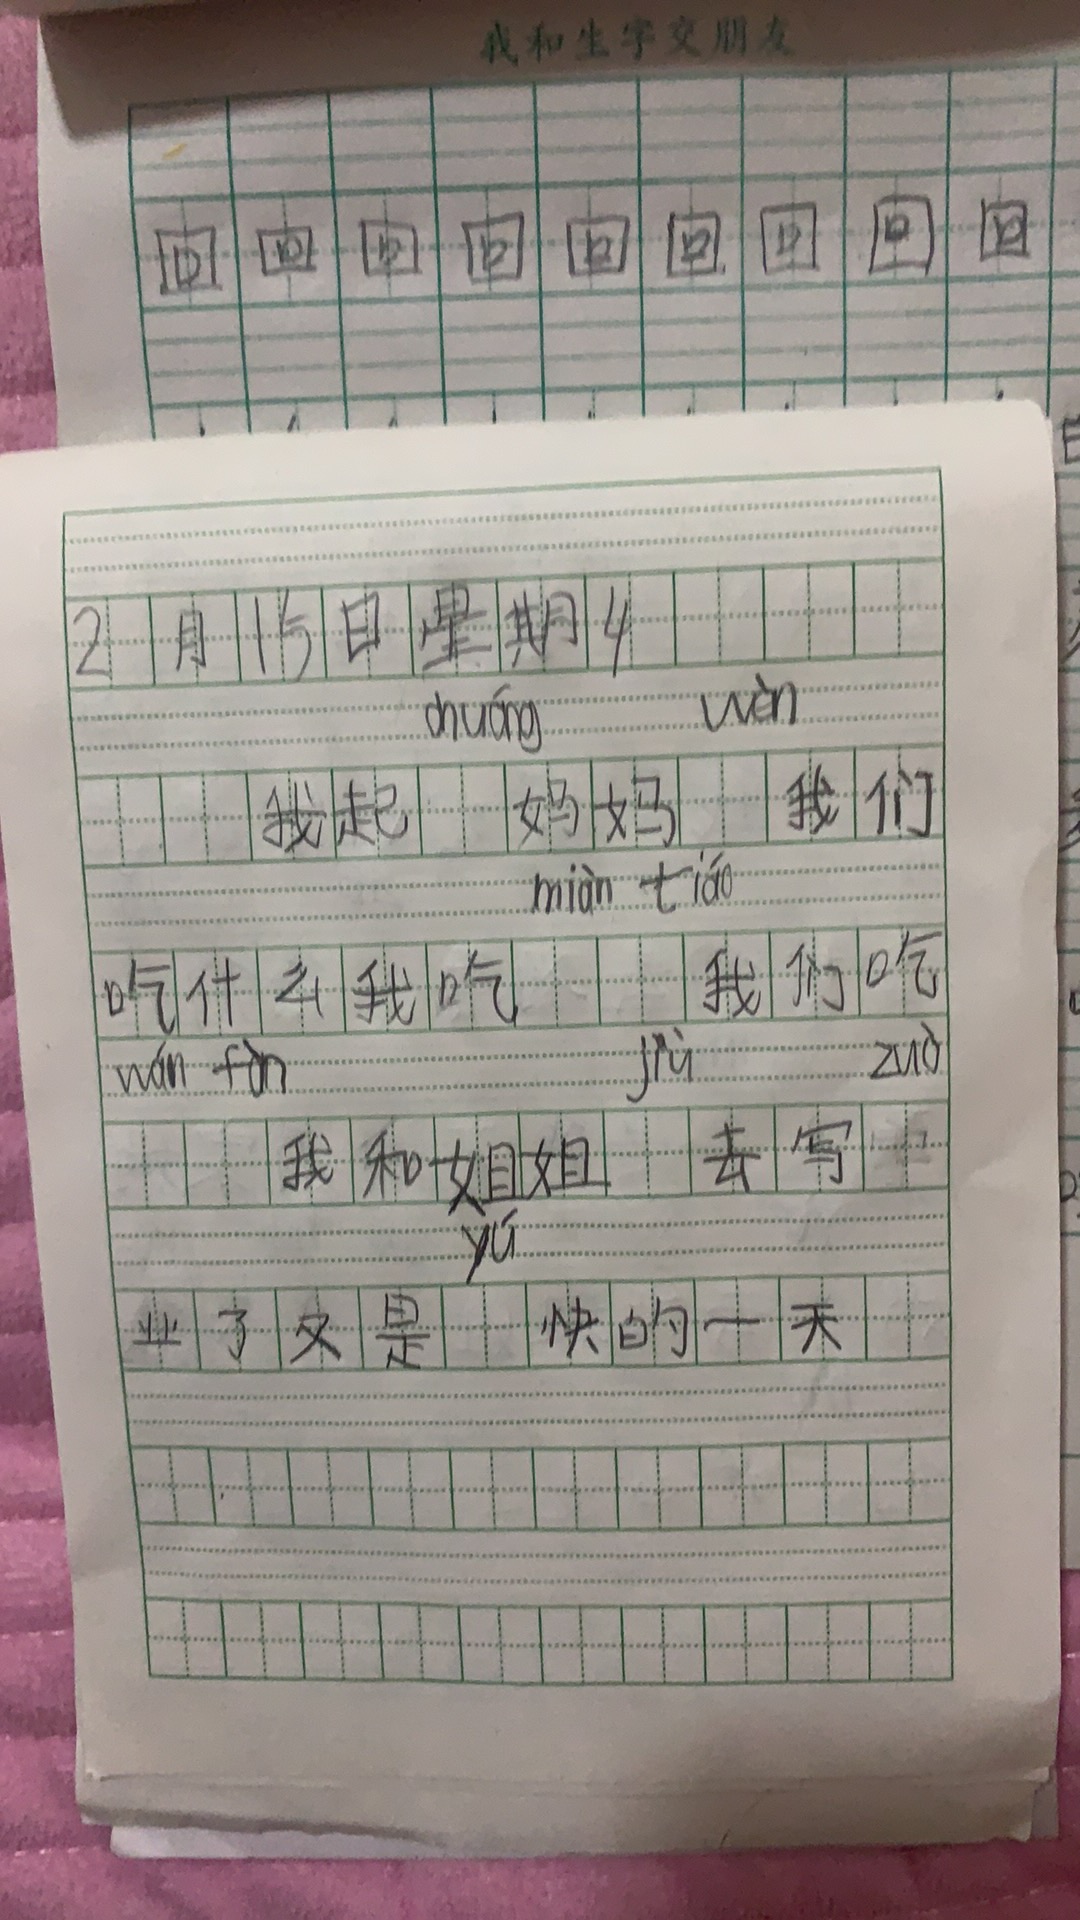 我和生字交朋友
回 回 回 回 回 回 回 回 回
2月15日星期4
chuáng wèn
我起 妈妈 我们
miàn tiáo
吃什么我吃 我们吃
wán fàn jiù zuò
我和姐姐 去写
yú
业了又是 快的一天